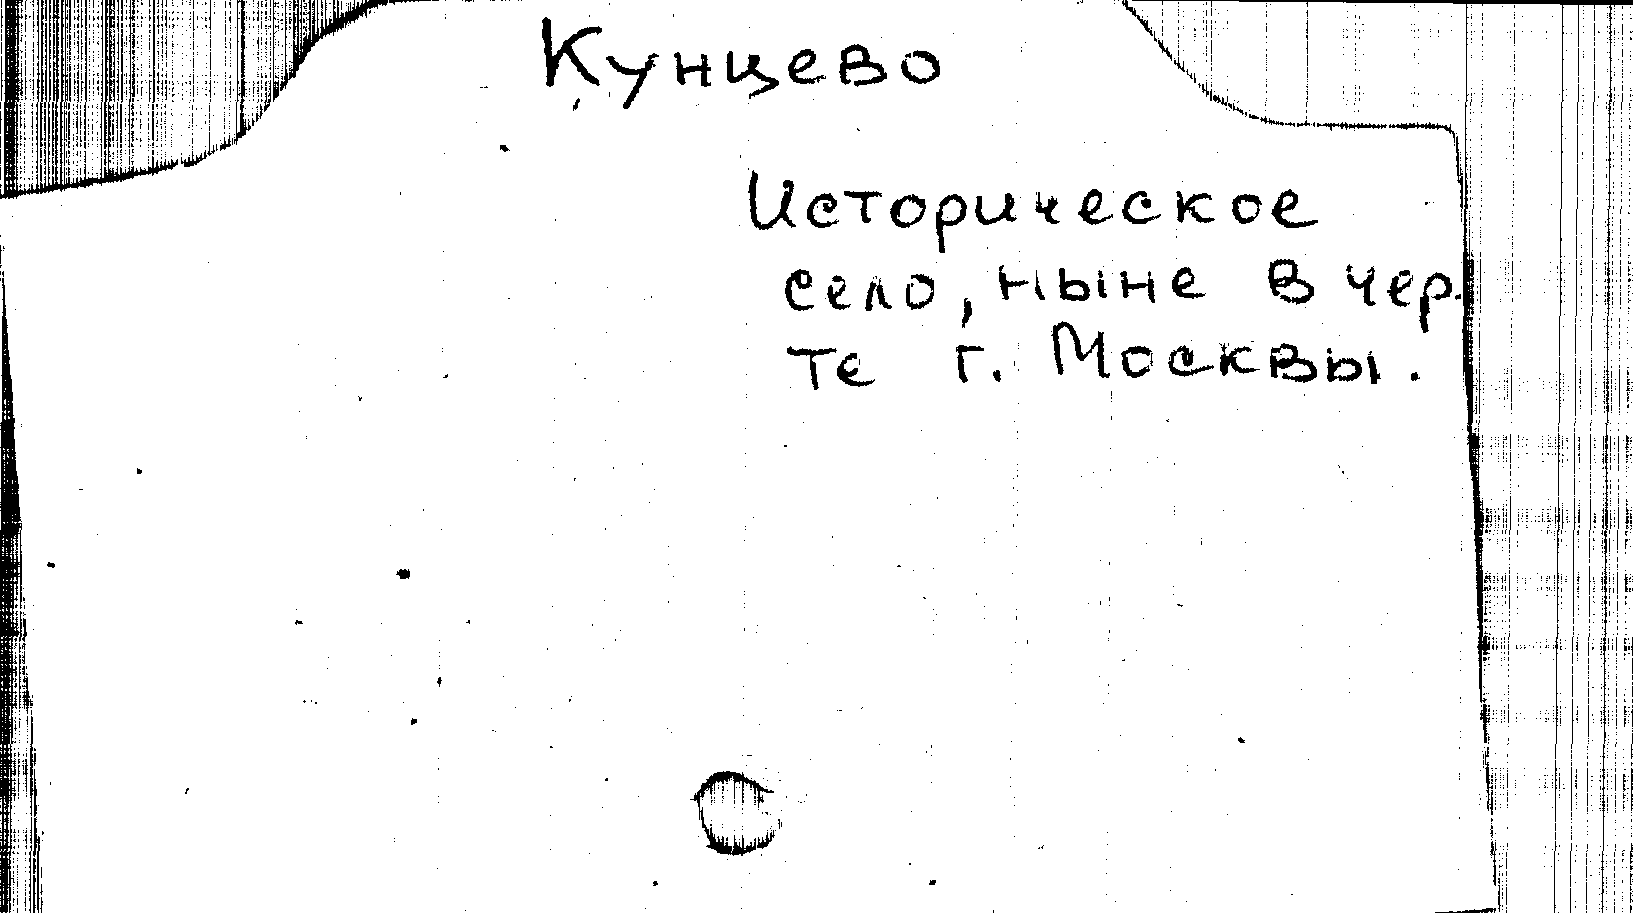 Кунцево
Историческое
село, ныне в чер-
те г. Москвы.